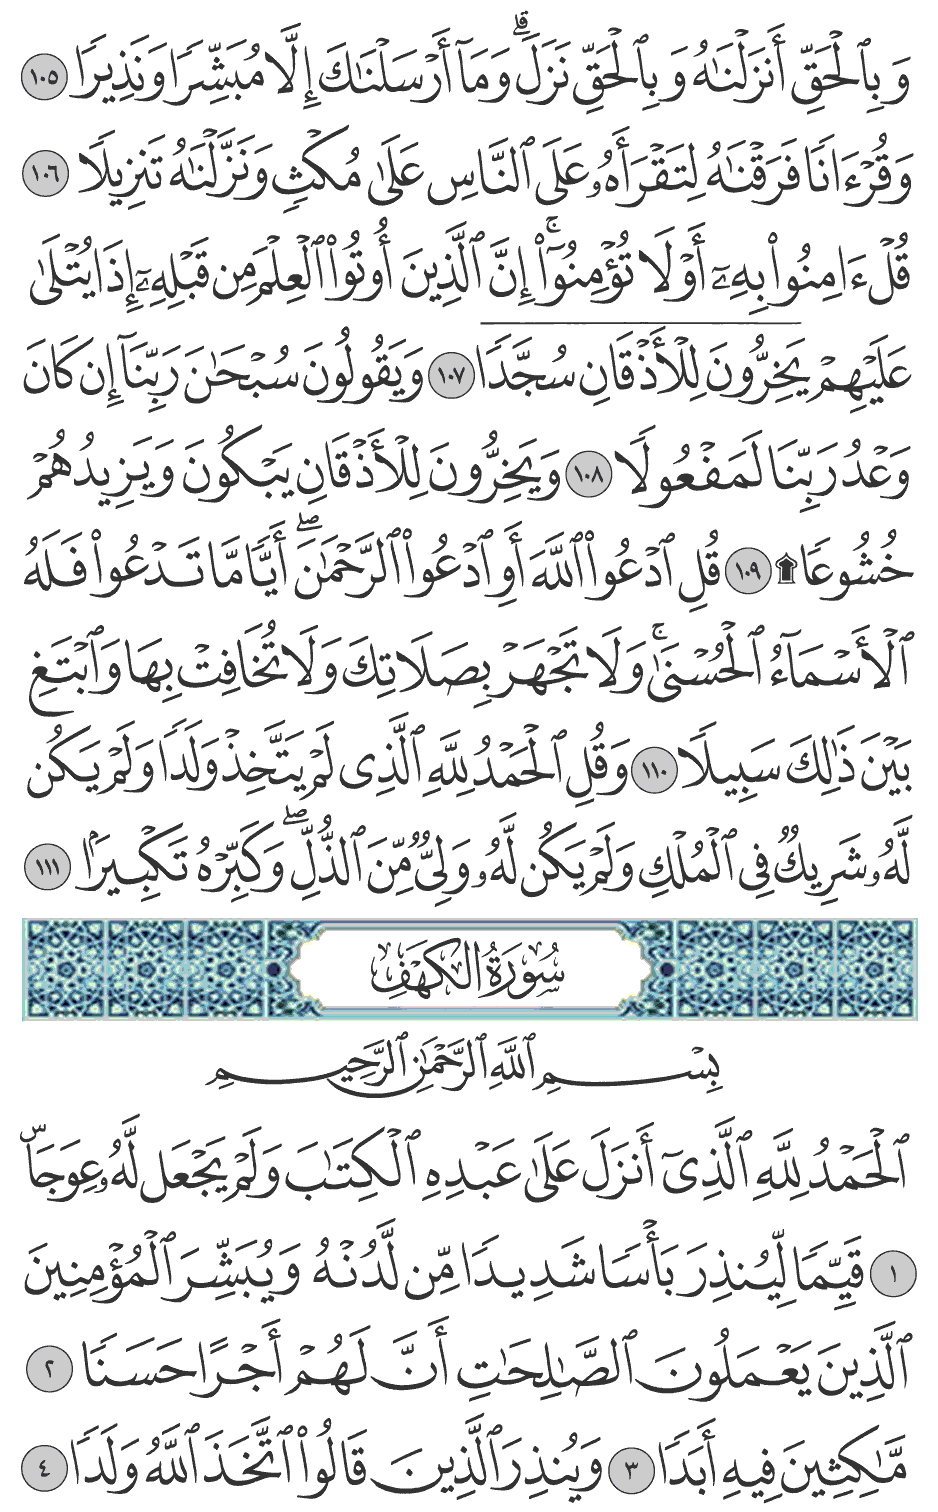 وَبِٱلْحَقِّ أَنزَلْنَٰهُ وَبِٱلْحَقِّ نَزَلَ ۗ وَمَآ أَرْسَلْنَٰكَ إِلَّا مُبَشِّرًا وَنَذِيرًا ١٠٥
وَقُرْءَانًا فَرَقْنَٰهُ لِتَقْرَأَهُۥ عَلَى ٱلنَّاسِ عَلَىٰ مُكْثٍ وَنَزَّلْنَٰهُ تَنزِيلًا ١٠٦
قُلْ ءَامِنُوا۟ بِهِۦٓ أَوْ لَا تُؤْمِنُوٓا۟ ۚ إِنَّ ٱلَّذِينَ أُوتُوا۟ ٱلْعِلْمَ مِن قَبْلِهِۦٓ إِذَا يُتْلَىٰ
عَلَيْهِمْ يَخِرُّونَ لِلْأَذْقَانِ سُجَّدًا ١٠٧ وَيَقُولُونَ سُبْحَٰنَ رَبِّنَآ إِن كَانَ
وَعْدُ رَبِّنَا لَمَفْعُولًا ١٠٨ وَيَخِرُّونَ لِلْأَذْقَانِ يَبْكُونَ وَيَزِيدُهُمْ
خُشُوعًا ۩ ١٠٩ قُلِ ٱدْعُوا۟ ٱللَّهَ أَوِ ٱدْعُوا۟ ٱلرَّحْمَٰنَ ۖ أَيًّا مَّا تَدْعُوا۟ فَلَهُ
ٱلْأَسْمَآءُ ٱلْحُسْنَىٰ ۚ وَلَا تَجْهَرْ بِصَلَاتِكَ وَلَا تُخَافِتْ بِهَا وَٱبْتَغِ
بَيْنَ ذَٰلِكَ سَبِيلًا ١١٠ وَقُلِ ٱلْحَمْدُ لِلَّهِ ٱلَّذِى لَمْ يَتَّخِذْ وَلَدًا وَلَمْ يَكُن
لَّهُۥ شَرِيكٌ فِى ٱلْمُلْكِ وَلَمْ يَكُن لَّهُۥ وَلِىٌّ مِّنَ ٱلذُّلِّ ۖ وَكَبِّرْهُ تَكْبِيرًۢا ١١١
سُورَةُ الكَهْفِ
بِسْمِ ٱللَّهِ ٱلرَّحْمَٰنِ ٱلرَّحِيمِ
ٱلْحَمْدُ لِلَّهِ ٱلَّذِىٓ أَنزَلَ عَلَىٰ عَبْدِهِ ٱلْكِتَٰبَ وَلَمْ يَجْعَل لَّهُۥ عِوَجَا ۜ
١ قَيِّمًا لِّيُنذِرَ بَأْسًا شَدِيدًا مِّن لَّدُنْهُ وَيُبَشِّرَ ٱلْمُؤْمِنِينَ
ٱلَّذِينَ يَعْمَلُونَ ٱلصَّٰلِحَٰتِ أَنَّ لَهُمْ أَجْرًا حَسَنًا ٢
مَّٰكِثِينَ فِيهِ أَبَدًا ٣ وَيُنذِرَ ٱلَّذِينَ قَالُوا۟ ٱتَّخَذَ ٱللَّهُ وَلَدًا ٤